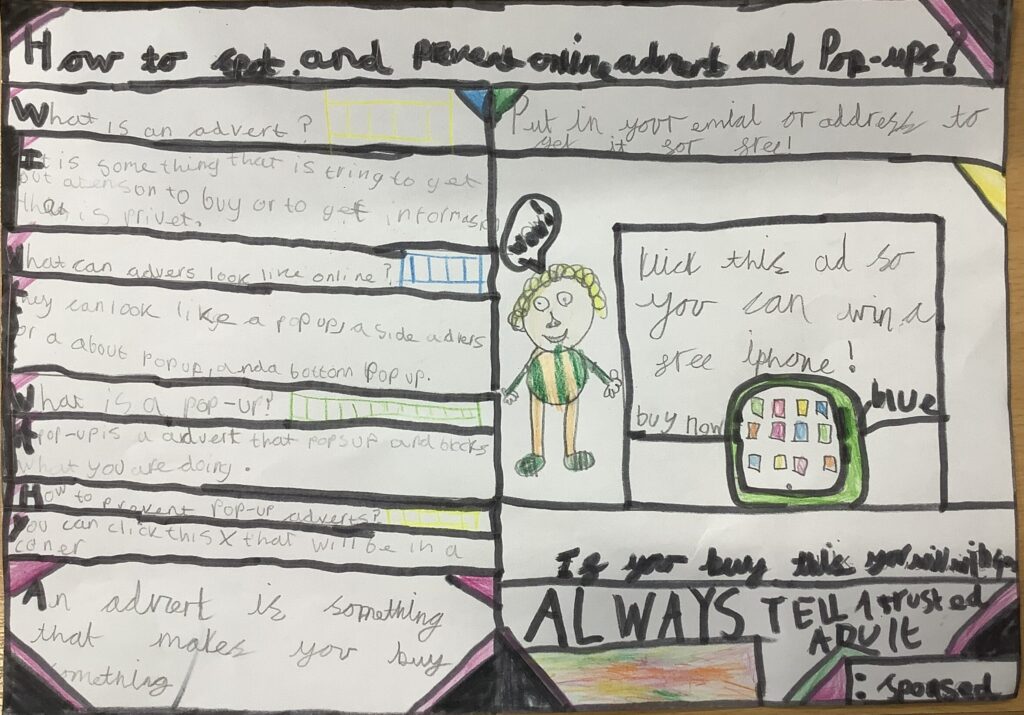 How to spot and prevent online advert and Pop-ups!
What is an advert?
It is some thing that is tring to get
out atenson to buy or to get informasion
that is privet.
What can advers look like online?
They can look like a pop up, a side advers
or a about pop up, and a bottom pop up.
What is a pop-up?
A pop-up is a advert that pops up and blocks
what you are doing.
How to prevent pop-up adverts?
You can click this X that will be in a
coner
An advert is something
that makes you buy
something
Put in your emial or address to
get it for free!
WOW!
klick this ad so
you can win a
free iphone!
buy now
blue
If you buy this you will
ALWAYS TELL A trusted
ADULT
: sponsed